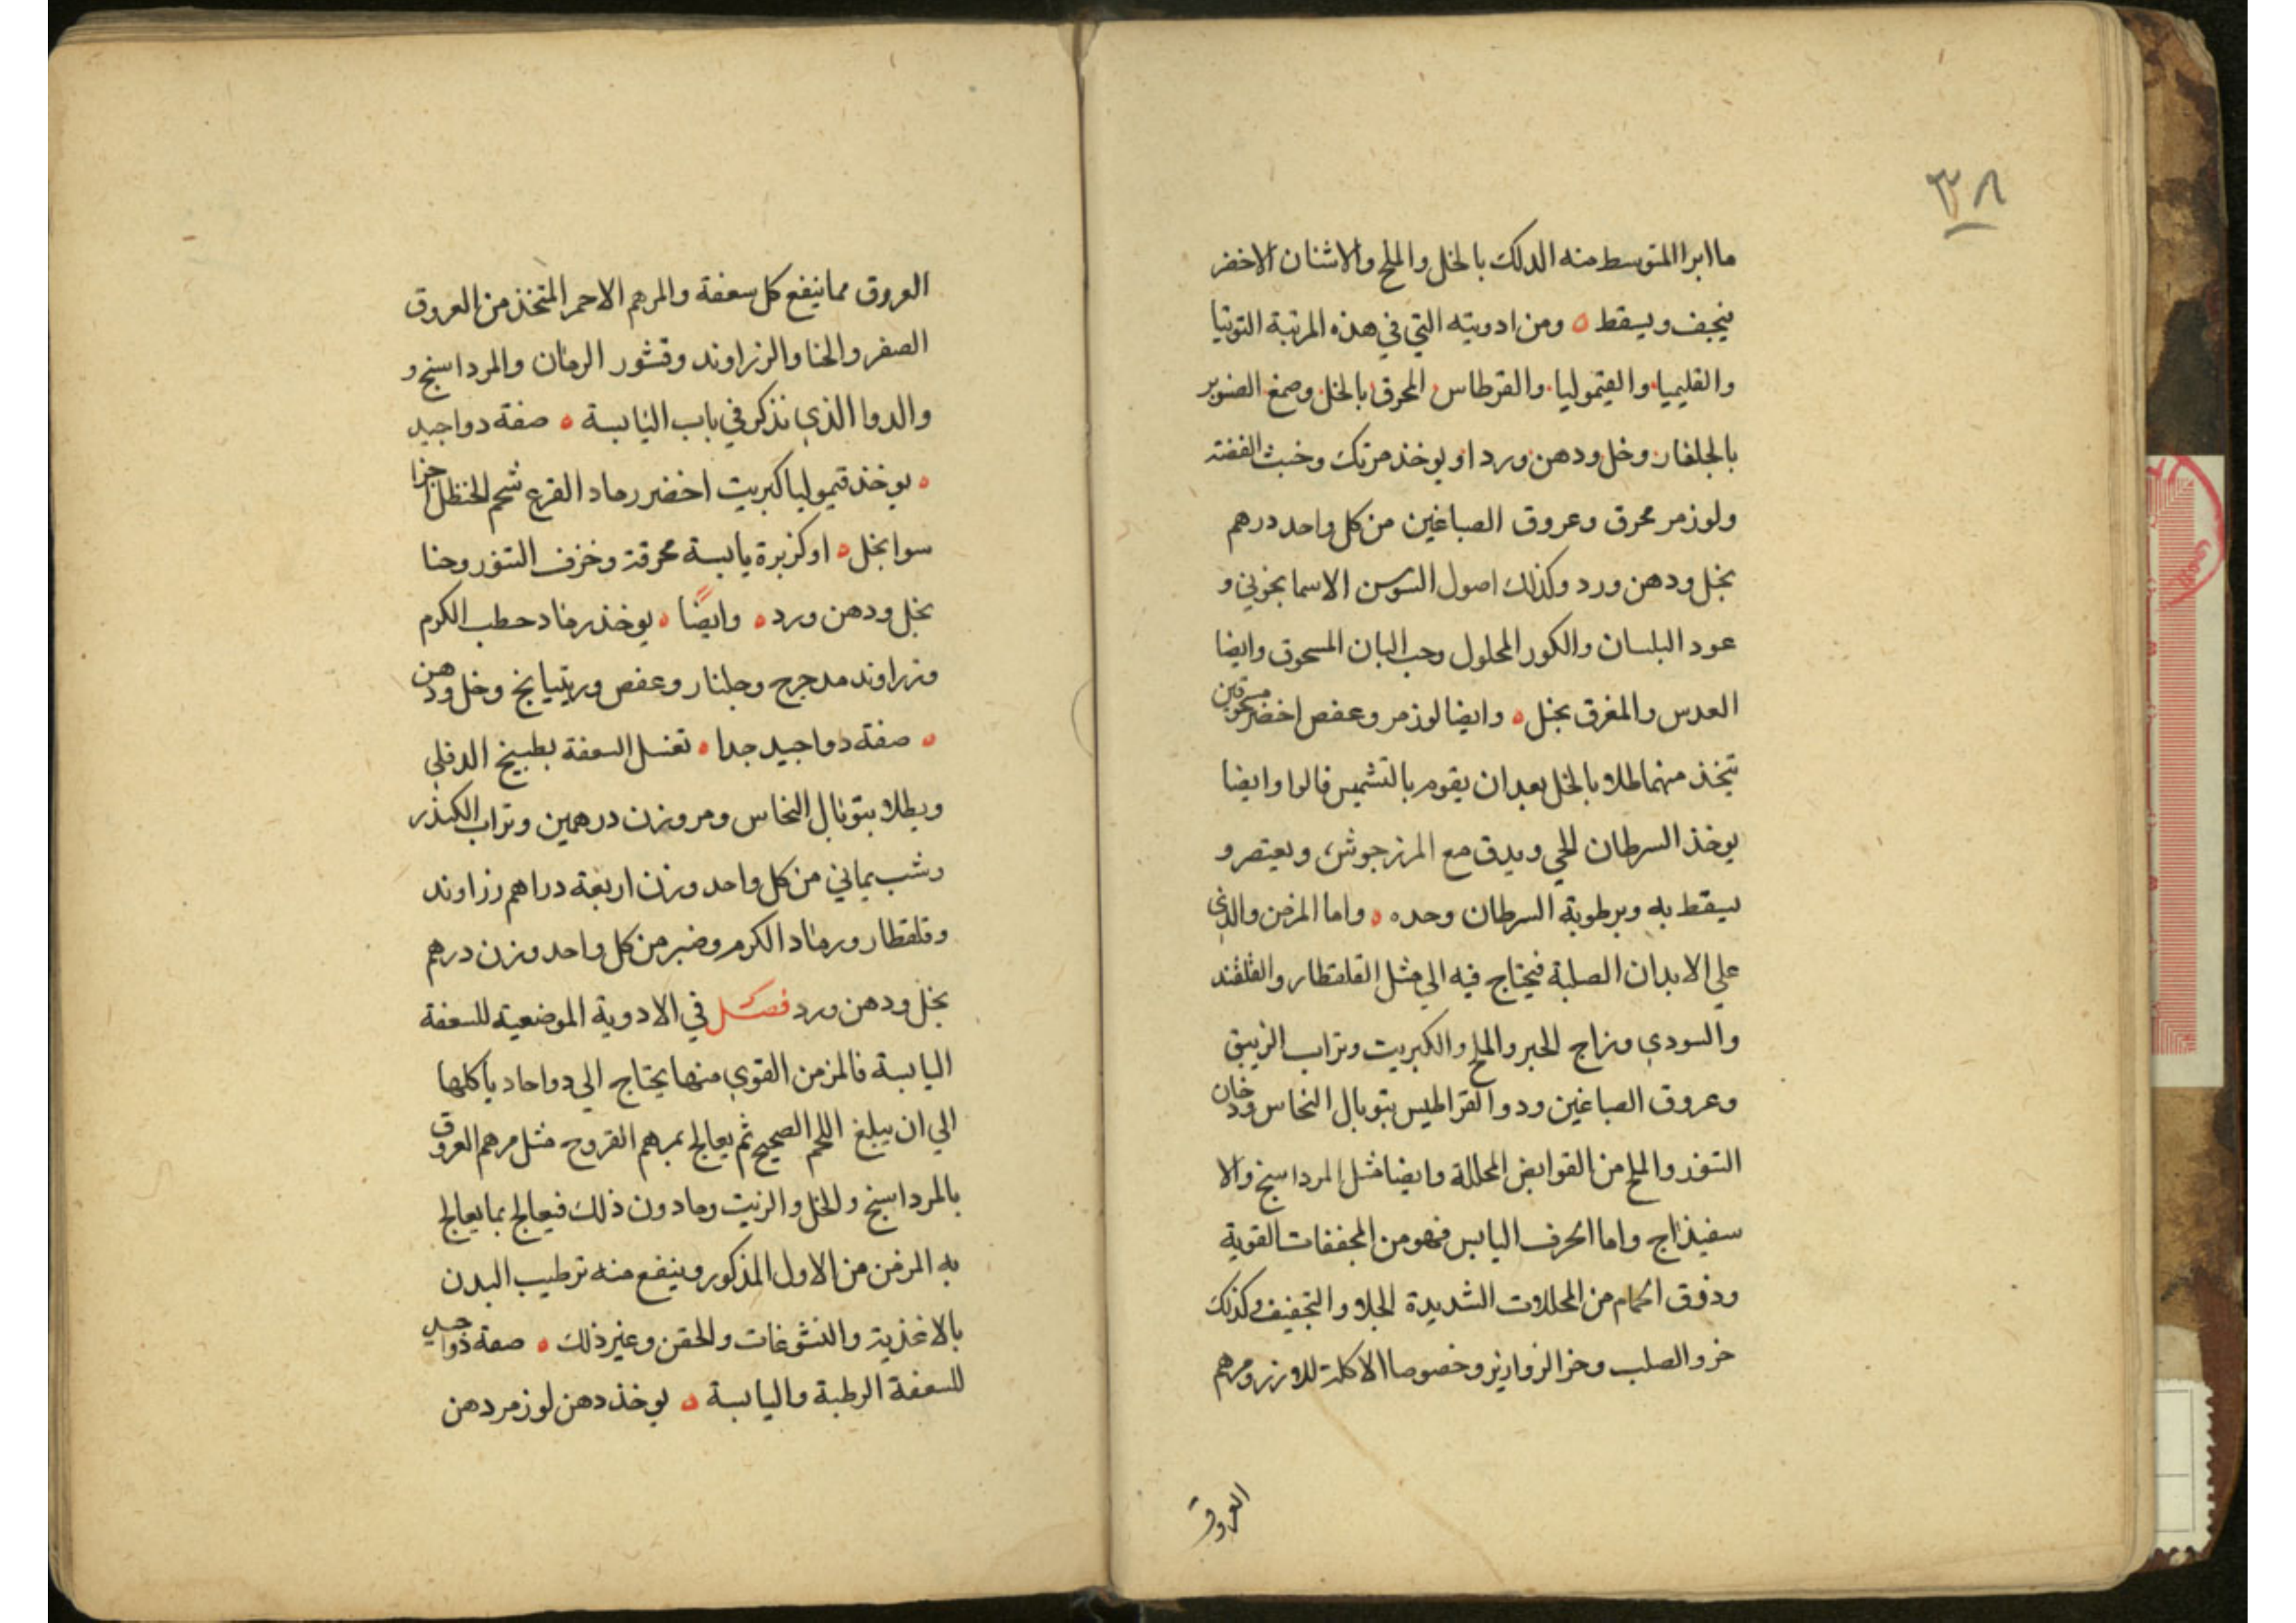 ٣٨
ما ابرا المتوسط منه الدلك بالخل والملح والاشنان الاخضر
فيجف ويسقط ه ومن ادويته التي في هذه المرتبة التوتيا
والقليميا والقيموليا والقرطاس المحرق بالخل وصمغ الصنوبر
بالجلنار وخل ودهن ورد او يوخذ مرتك وخبث الفضة
ولوز مر محرق وعروق الصباغين من كل واحد درهم
بخل ودهن ورد وكذلك اصول السوسن الاسمانجوني و
عود البلسان والكور المحلول وحب البان المسحوق وايضا
العدس والمغرق بخل ه وايضا لوز مر وعفص اخضر مسحوقين
يتخذ منهما طلا بالخل بعد ان يقوم بالتشميس قالوا وايضا
يوخذ السرطان الحي ويدق مع المرزجوش ويعتصر و
يسقط به وبرطوبة السرطان وحده ه واما المزمن والذي
علي الابدان الصلبة فيحتاج فيه الي مثل القلقطار والقلقند
والسودي وزاج الحبر والملح والكبريت وتراب الزيبق
وعروق الصباغين ودوا القراطيس بتوبال النحاس ودخان
التنور والملح من القوابض المحللة وايضا مثل المرداسنج والا
سفيذاج واما الحرف اليابس فهو من المجففات القوية
وذرق الحمام من المحللات الشديدة الجلا والتجفيف وكذلك
خرو الصلب وخر الزوازير وخصوصا الاكلة للارز ومرهم
العروق
العروق مما ينفع كل سعفة والمرهم الاحمر المتخذ من العروق
الصفر والحنا والزراوند وقشور الرمان والمرداسنج و
والدوا الذي نذكر في باب اليابسة ه صفة دوا جيد
ه يوخذ قيموليا كبريت اخضر رماد القرع شحم الحنظل اجزا
سوا بخل ه او كزبرة يابسة محرقة وخزف التنور وحنا
بخل ودهن ورد ه وايضًا ه يوخذ رماد حطب الكرم
وزراوند مدحرج وجلنار وعفص وريتيانج وخل ودهن
ه صفة دوا جيد جدا ه تغسل السعفة بطبيخ الدفلي
ويطلا بتوبال النحاس ومر وزن درهمين وتراب الكندر
وشب يماني من كل واحد وزن اربعة دراهم زراوند
وقلقطار ورماد الكرم وصبر من كل واحد وزن درهم
بخل ودهن ورد فصل في الادوية الموضعية للسعفة
اليابسة فالمزمن القوي منها يحتاج الي دوا حاد ياكلها
الي ان يبلغ اللحم الصحيح ثم يعالج بمرهم القروح مثل مرهم العروق
بالمرداسنج والخل والزيت وما دون ذلك فيعالج بما يعالج
به المزمن من الاول المذكور وينفع منه ترطيب البدن
بالاغذية والنشوغات والحقن وغير ذلك ه صفة دوا جيد
للسعفة الرطبة واليابسة ه يوخذ دهن لوز مر دهن